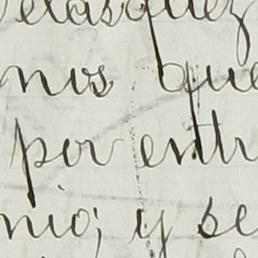 elasquez
nos que
por entr
nio; y se